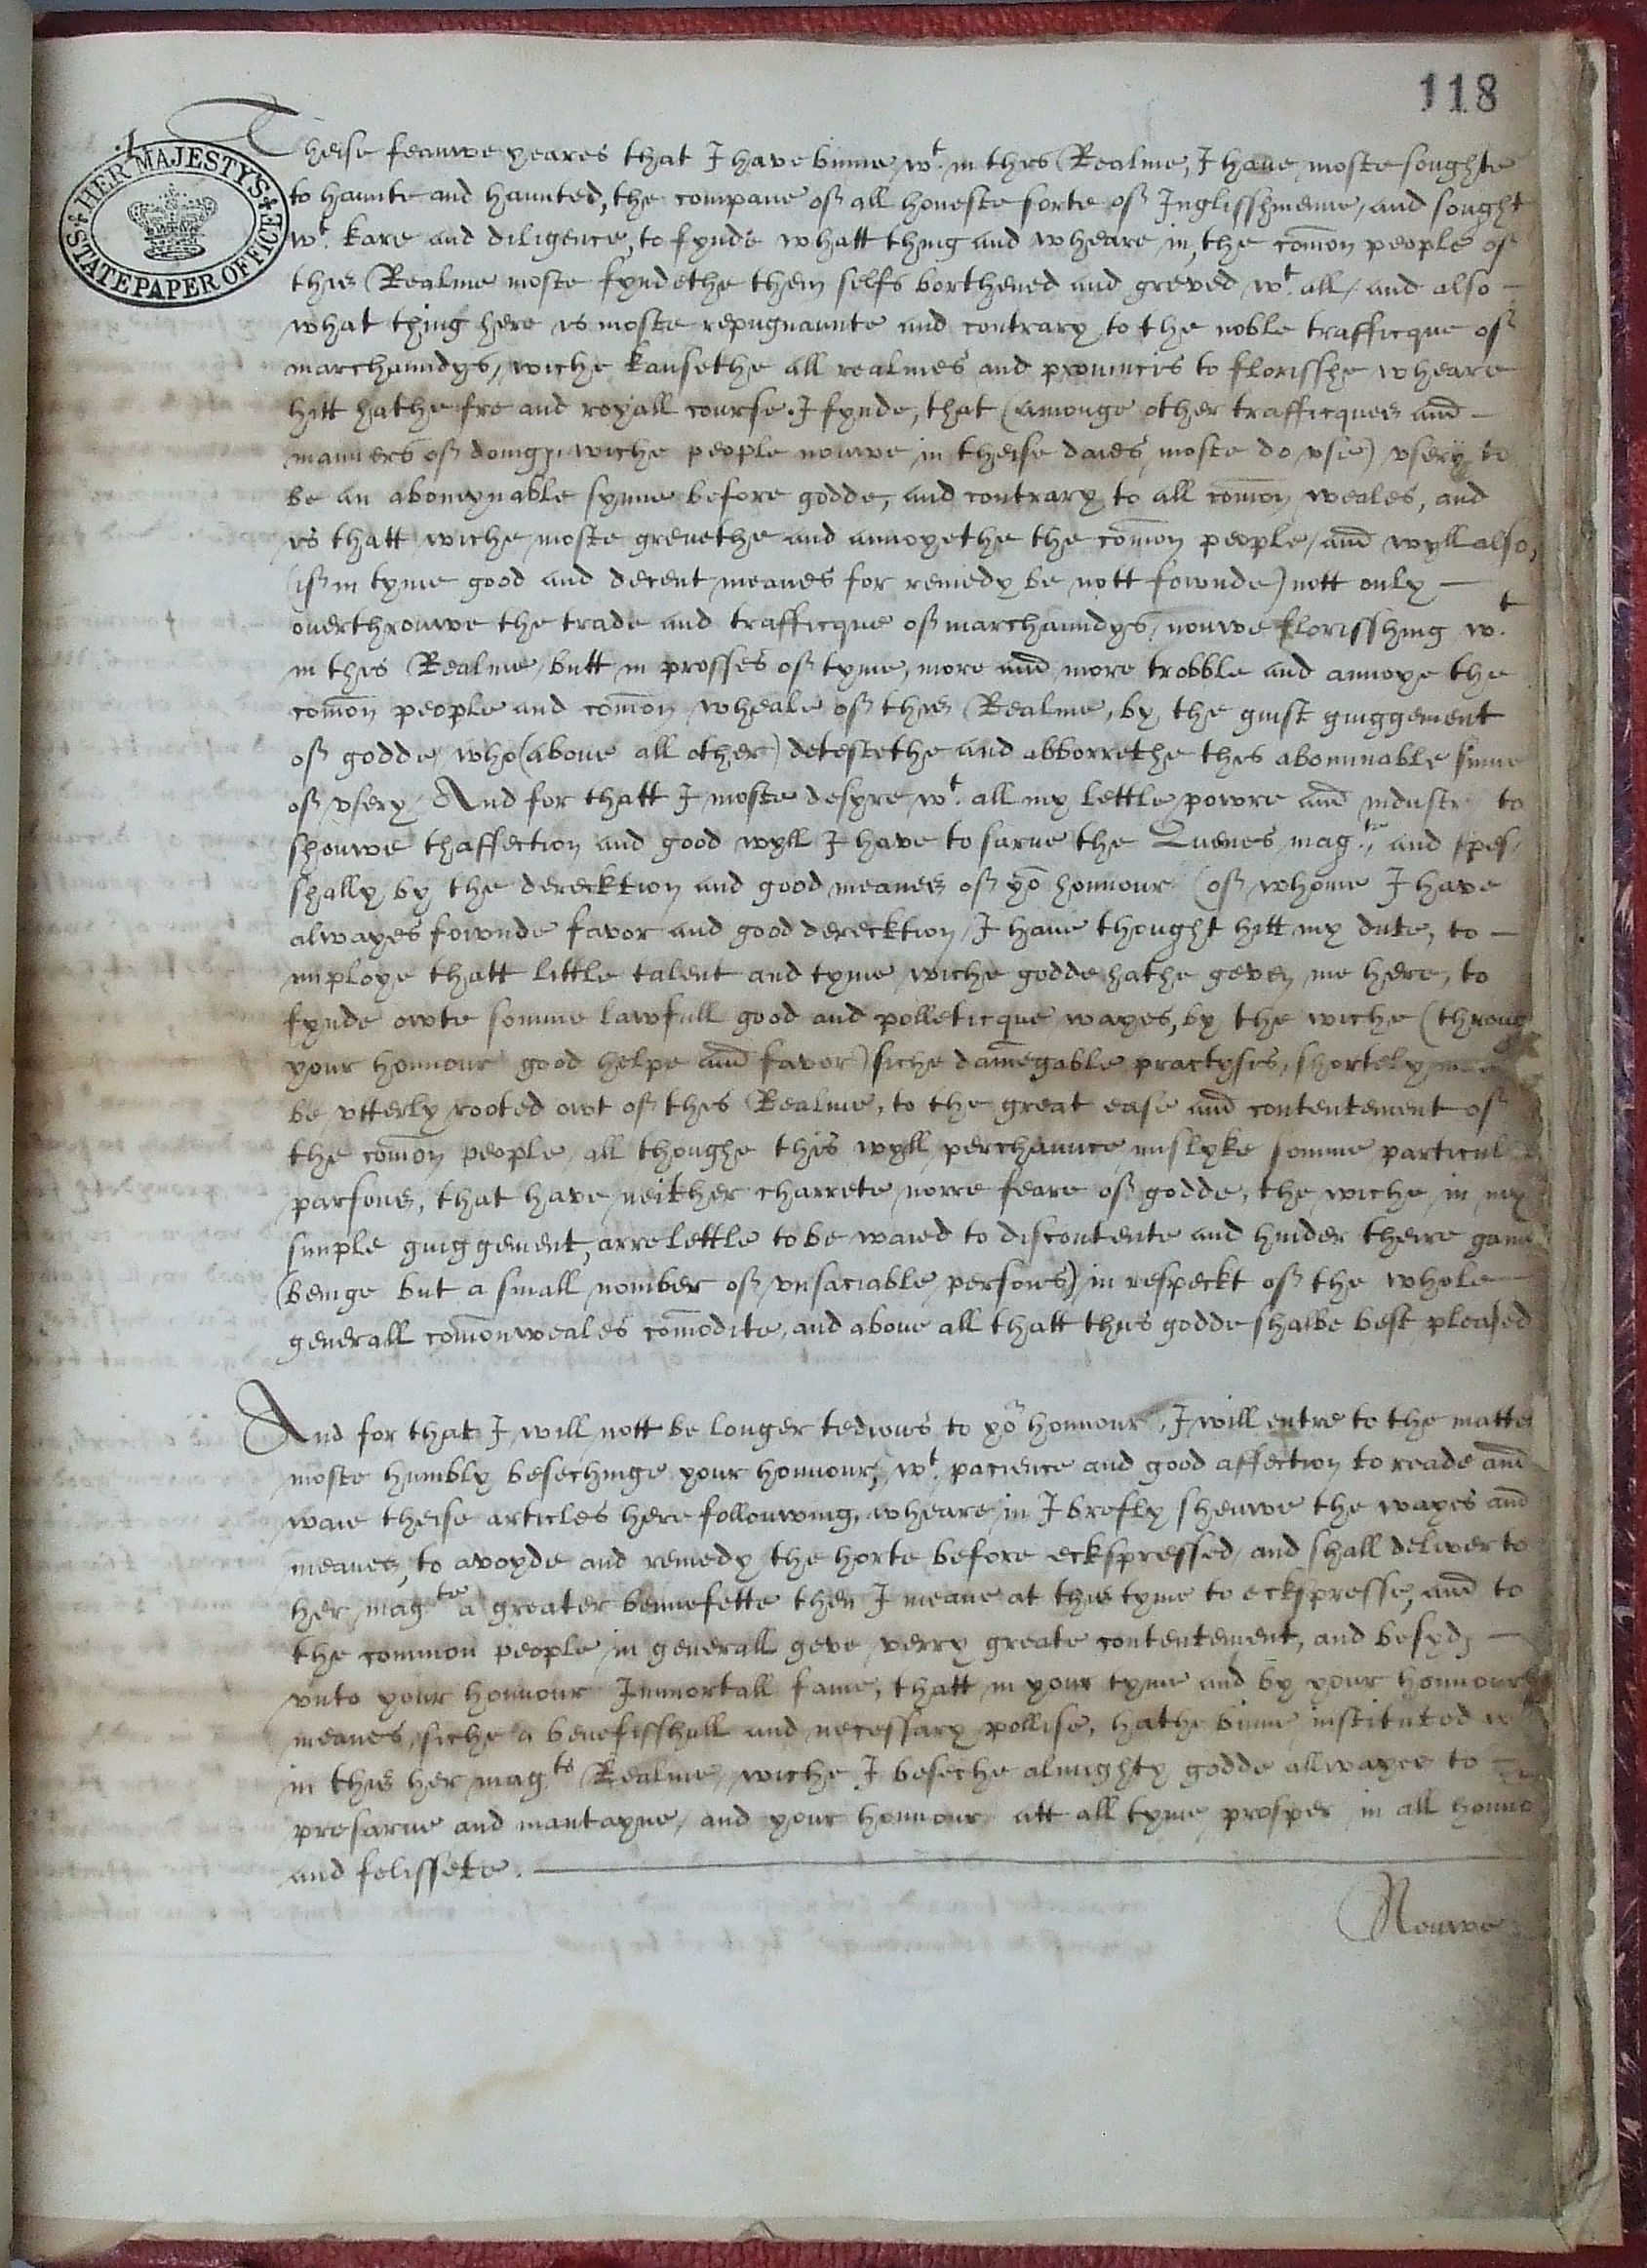 118
HER MAJESTYS STATE PAPER OFFICE
Theise feauwe yeares that I have binne wt. in this Realme, I haue moste soughte
to haunte and haunted, the companie of all honeste sorte of Inglisshmenne, and sought
wt. kare and diligence, to fynde whatt thing and wheare in, the comon people of
this Realme moste fyndethe them selfs borthened and greved wt. all, and also
what thing here is moste repugnaunte and contrary to the noble trafficque of
marchaundys, wiche kausethe all realmes and provincis to florisshe wheare
hitt hathe fre and royall course. I fynde, that (amonge other trafficques and
manners of doing, wiche people nouwe in theise daies moste do vse) vsery to
be an abomynable synne before godde, and contrary to all comon weales, and
is thatt wiche moste grenethe and annoyethe the comon people, and wyll also,
(if in tyme good and decent meanes for remedy be nott fownde) nott only
ouerthrouwe the trade and trafficque of marchaundys, nouwe florisshing wt.
in this Realme, butt in prosses of tyme, more and more trobble and annoye the
comon people and comon wheale of this Realme, by the giust giuggement
of godde, who (aboue all other) detestethe and abborrethe this abominable sinne
of vsery. And for thatt I moste desyre wt. all my lettle powre and industr to
shouwe thaffection and good wyll I have to sarue the Quenes magtie. and spes/
shally by the derecktion and good meanes of yor honnour (of whome I have
alwayes fownde favor and good derecktion, I haue thought hitt my dute, to
imploye thatt little talent and tyme wiche godde hathe geven me here, to
fynde owte somme lawfull good and polleticque wayes, by the wiche (throug
your honnour good helpe and favor) siche damegable practyses, shortely
be vtterly rooted owt of this Realme, to the great ease and contentement of
the comon people, all thoughe this wyll perchaunce mislyke somme particul
parsones, that have neither charrete norre feare of godde, the wiche in my
simple giuggement, arre lettle to be waied to discontente and hinder theire gaine
(beinge but a small nomber of vnsaciable persones) in respeckt of the whole
generall comonweales comodite, and aboue all thatt this godde shalbe best pleased
And for that I will nott be longer tedious to yor honnour, I will entre to the matter
moste humbly besechinge your honnour, wt. pacience and good affection to reade and
waie theise articles here follouwing, wheare in I brefly sheuwe the wayes and
meanes, to avoyde and remedy the horte before eckspressed, and shall deliver to
her magtie a greater bennefette then I meane at this tyme to eckspresse, and to
the common people in generall geve verry greate contentement, and besyds
vnto your honnour Immortall fame, thatt in your tyme and by your honnours
meanes, siche a benefisshall and necessary pollise, hathe binne instituted w
in this her magts Realme, wiche I beseche almighty godde allwayes to
presarue and mantayne, and your honnour att all tyme prosper in all honno
and felissete.
Nouwe